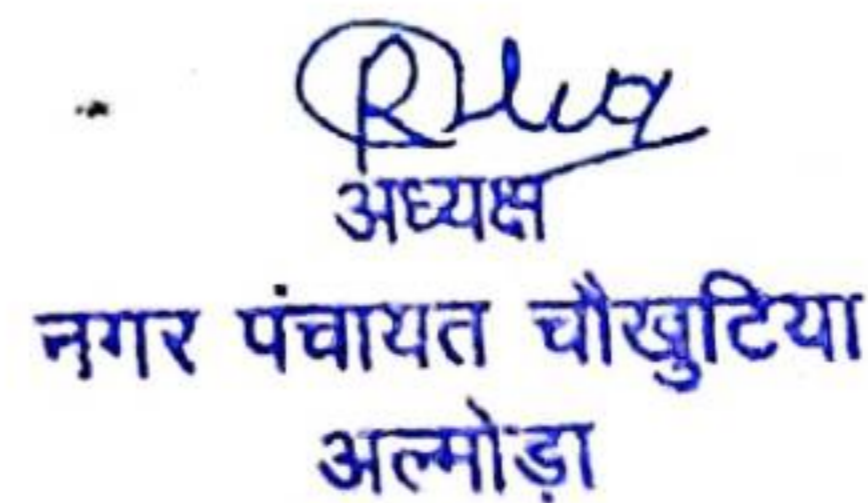 अध्यक्ष
नगर पंचायत चौखुटिया
अल्मोड़ा